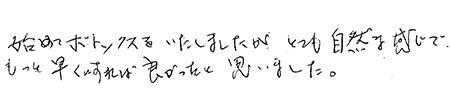 始めてボトックスをいたしましたが とても自然な感じで
もっと早くすれば良かったと思いました。